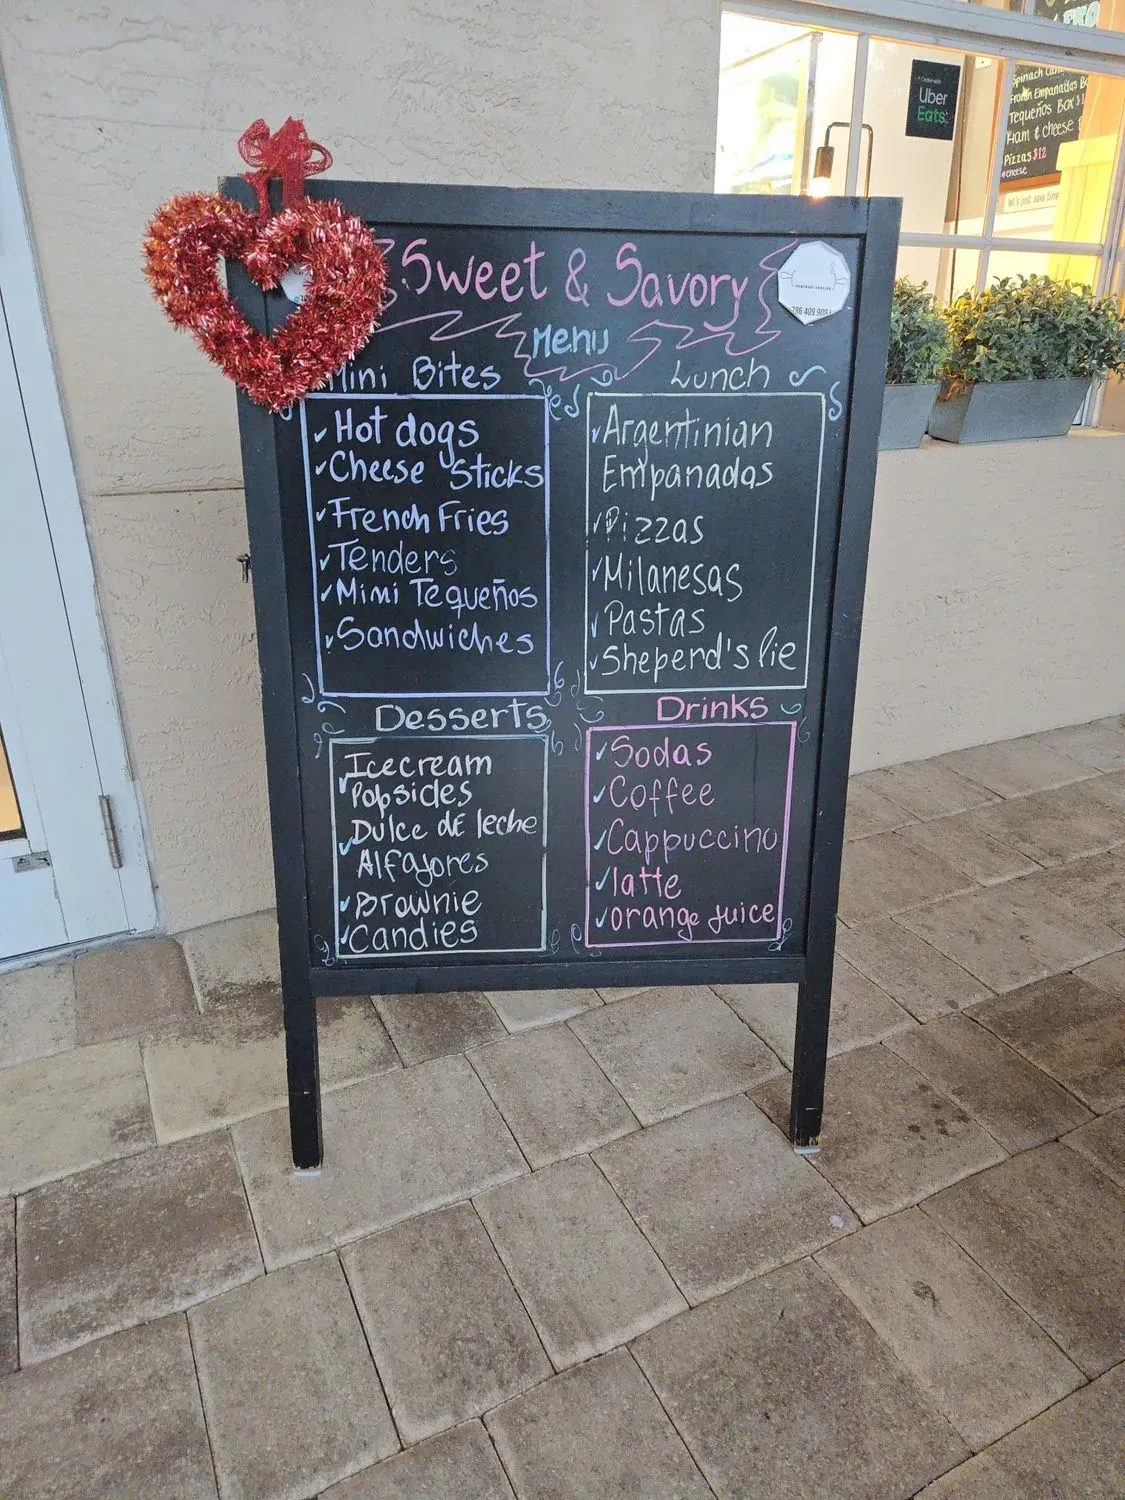 Sweet & Savory
Menu
Mini Bites
✓Hot dogs
✓Cheese Sticks
✓French Fries
✓Tenders
✓Mini Tequeños
✓Sandwiches
Lunch
✓Argentinian
Empanadas
✓Pizzas
✓Milanesas
✓Pastas
✓Sheperd's Pie
Desserts
✓Icecream
Popsicles
✓Dulce de leche
Alfajores
✓Brownie
✓Candies
Drinks
✓Sodas
✓Coffee
✓Cappuccino
✓latte
✓orange juice
786 409 9081
Order with
Uber
Eats
Spinach
Frozen Empanadas
Tequeños Box
Ham & cheese
Pizzas $12
cheese
let's just save time